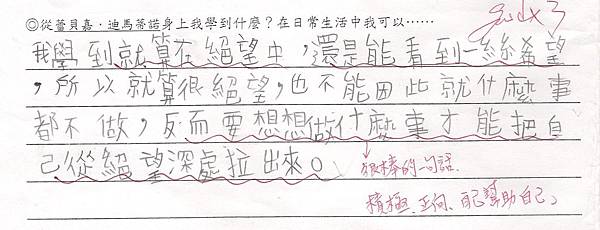 ◎從蕾貝嘉．迪馬蒂諾身上我學到什麼？在日常生活中我可以……
我學到就算在絕望中，還是能看到一絲希望
，所以就算很絕望，也不能因此就什麼事
都不做，反而要想想做什麼事才能把自
己從絕望深處拉出來。
很棒的一句話.
積極、正向、自己幫助自己、